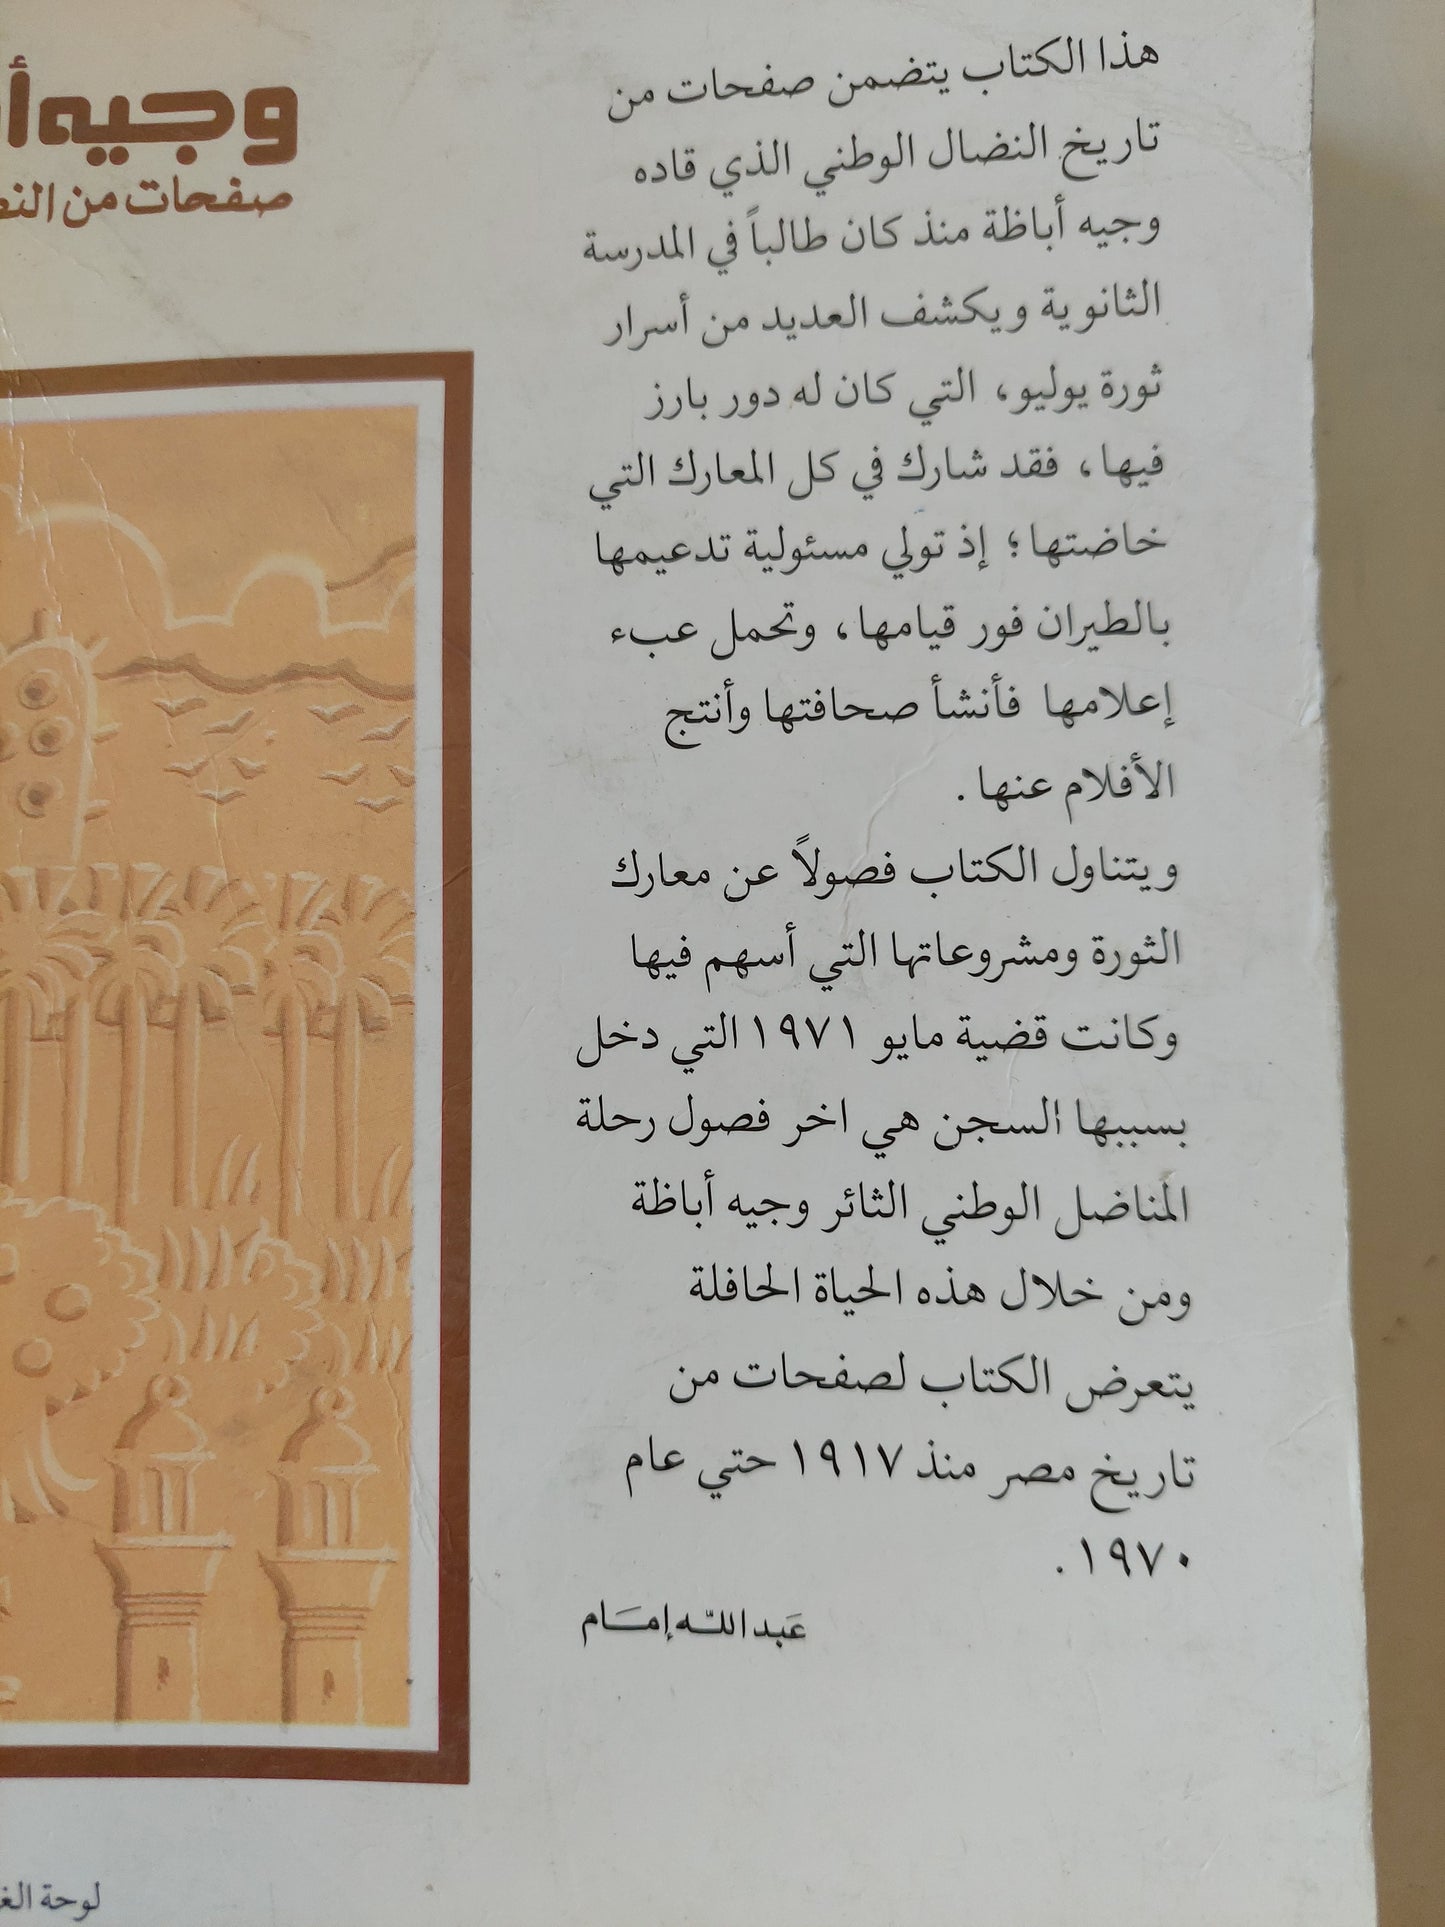 هذا الكتاب يتضمن صفحات من
تاريخ النضال الوطني الذي قاده
وجيه أباظة منذ كان طالباً في المدرسة
الثانوية ويكشف العديد من أسرار
ثورة يوليو، التي كان له دور بارز
فيها، فقد شارك في كل المعارك التي
خاضتها؛ إذ تولي مسئولية تدعيمها
بالطيران فور قيامها، وتحمل عبء
إعلامها فأنشأ صحافتها وأنتج
الأفلام عنها.
ويتناول الكتاب فصولاً عن معارك
الثورة ومشروعاتها التي أسهم فيها
وكانت قضية مايو ١٩٧١ التي دخل
بسببها السجن هي اخر فصول رحلة
المناضل الوطني الثائر وجيه أباظة
ومن خلال هذه الحياة الحافلة
يتعرض الكتاب لصفحات من
تاريخ مصر منذ ١٩١٧ حتي عام
١٩٧٠.
عَبد اللّه إمَام
وجيه
صفحات من
لوحة